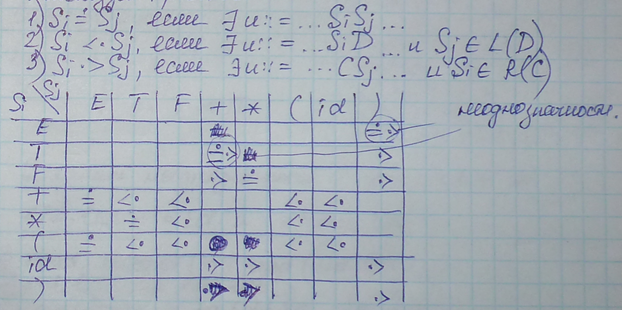 1) Si ≐ Sj, если ∃ u::= ...SiSj...
2) Si <· Sj, если ∃ u::= ...SiD ... и Sj ∈ L(D)
3) Si ·> Sj, если ∃ u::= ...CSj... и Si ∈ R(C)
Si \ Sj E T F + * ( id )
E ≐ ·> неоднозначности.
T ≐ ·> ·>
F ·> ≐ ·>
+ ≐ <· <· <· <·
* ≐ <· <· <·
( ≐ <· <· <· <·
id ·> ·> ·>
) ·> ·> ·>